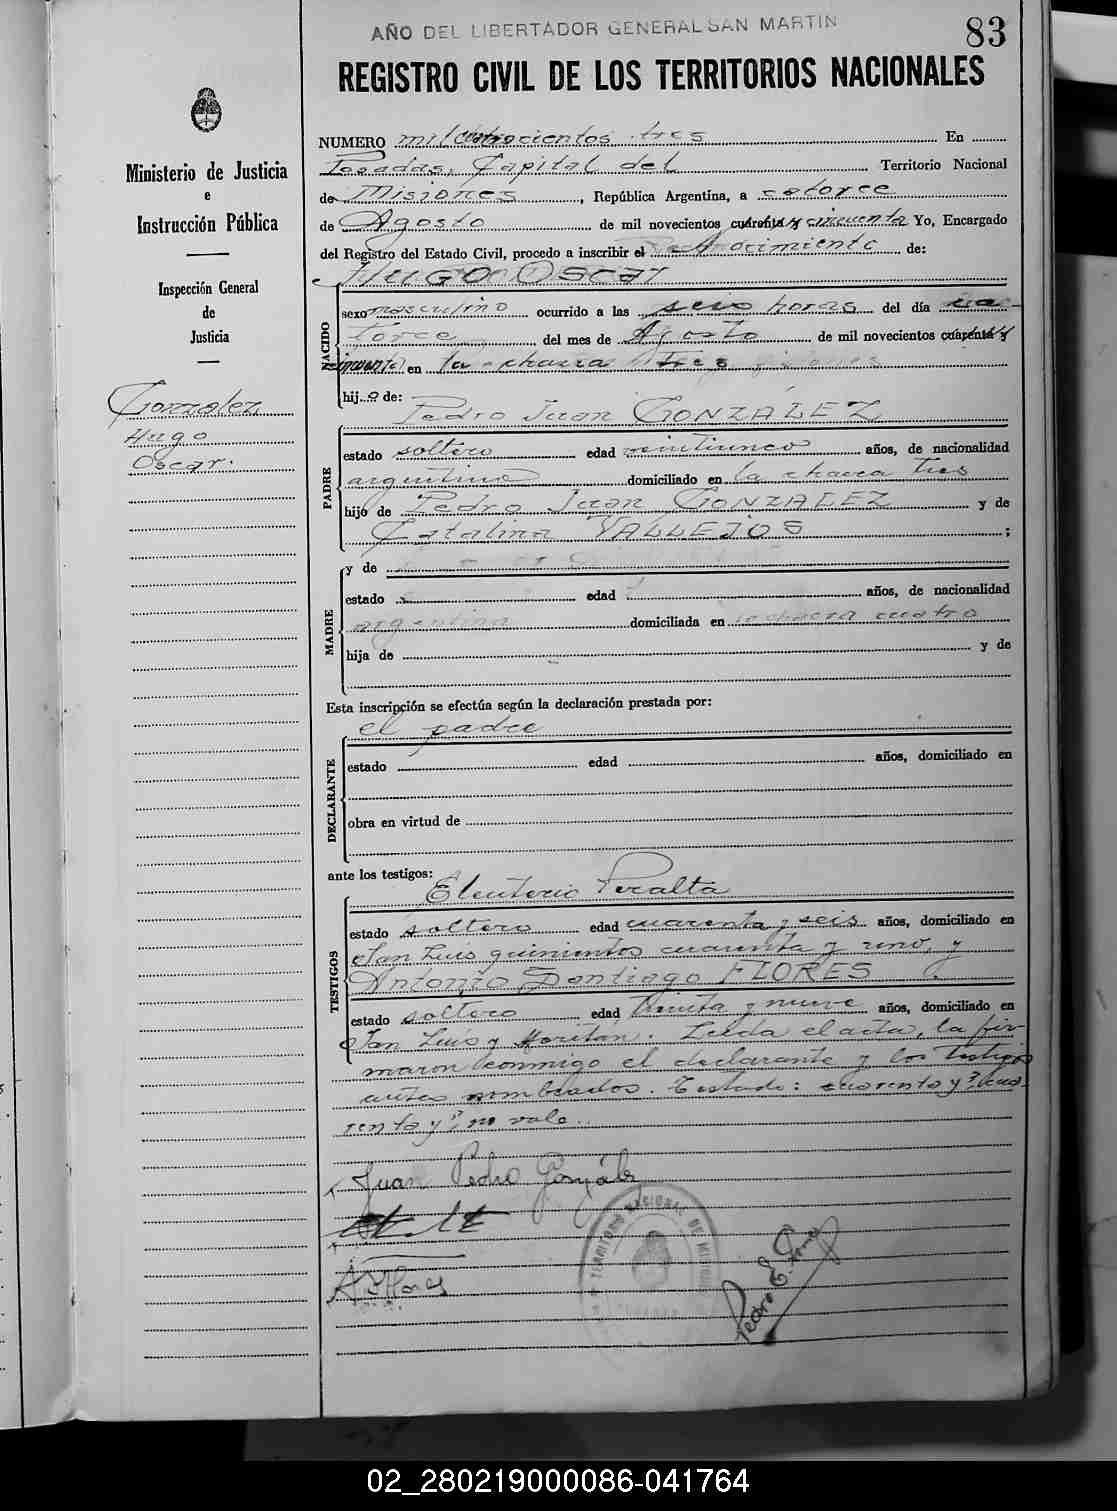 AÑO DEL LIBERTADOR GENERAL SAN MARTIN
83
REGISTRO CIVIL DE LOS TERRITORIOS NACIONALES
Ministerio de Justicia
e
Instrucción Pública
Inspección General
de
Justicia
Gonzalez
Hugo
Oscar.
NUMERO mil cuatrocientos tres En
Posadas, Capital del Territorio Nacional
de Misiones, República Argentina, a catorce
de Agosto de mil novecientos cuarenta y cincuenta Yo, Encargado
del Registro del Estado Civil, procedo a inscribir el nacimiento de:
HUGO OSCAR
NACIDO
sexo masculino ocurrido a las seis horas del día ca-
torce del mes de Agosto de mil novecientos cuarenta y
cincuenta en la chacra tres
hij o de:
Pedro Juan GONZÁLEZ
PADRE
estado soltero edad veintiunco años, de nacionalidad
argentino domiciliado en la chacra tres
hijo de Pedro Juan GONZALEZ y de
Catalina VALLEJOS ;
y de
MADRE
estado edad años, de nacionalidad
argentina domiciliada en la chacra cuatro
hija de y de
Esta inscripción se efectúa según la declaración prestada por:
el padre
DECLARANTE
estado edad años, domiciliado en
obra en virtud de
ante los testigos:
Eleuterio Peralta
TESTIGOS
estado soltero edad cuarenta y seis años, domiciliado en
San Luis quinientos cuarenta y uno, y
Antonio Santiago FLORES
estado soltero edad treinta y nueve años, domiciliado en
San Luis y Moritán. Leída el acta, la fir-
maron conmigo el declarante y los testigos
antes nombrados. Testado: cuarenta y?, cua-
renta y?, no vale.
Juan Pedro González
A. Flores
TERRITORIO NACIONAL DE MISIONES
Pedro E.
02_280219000086-041764